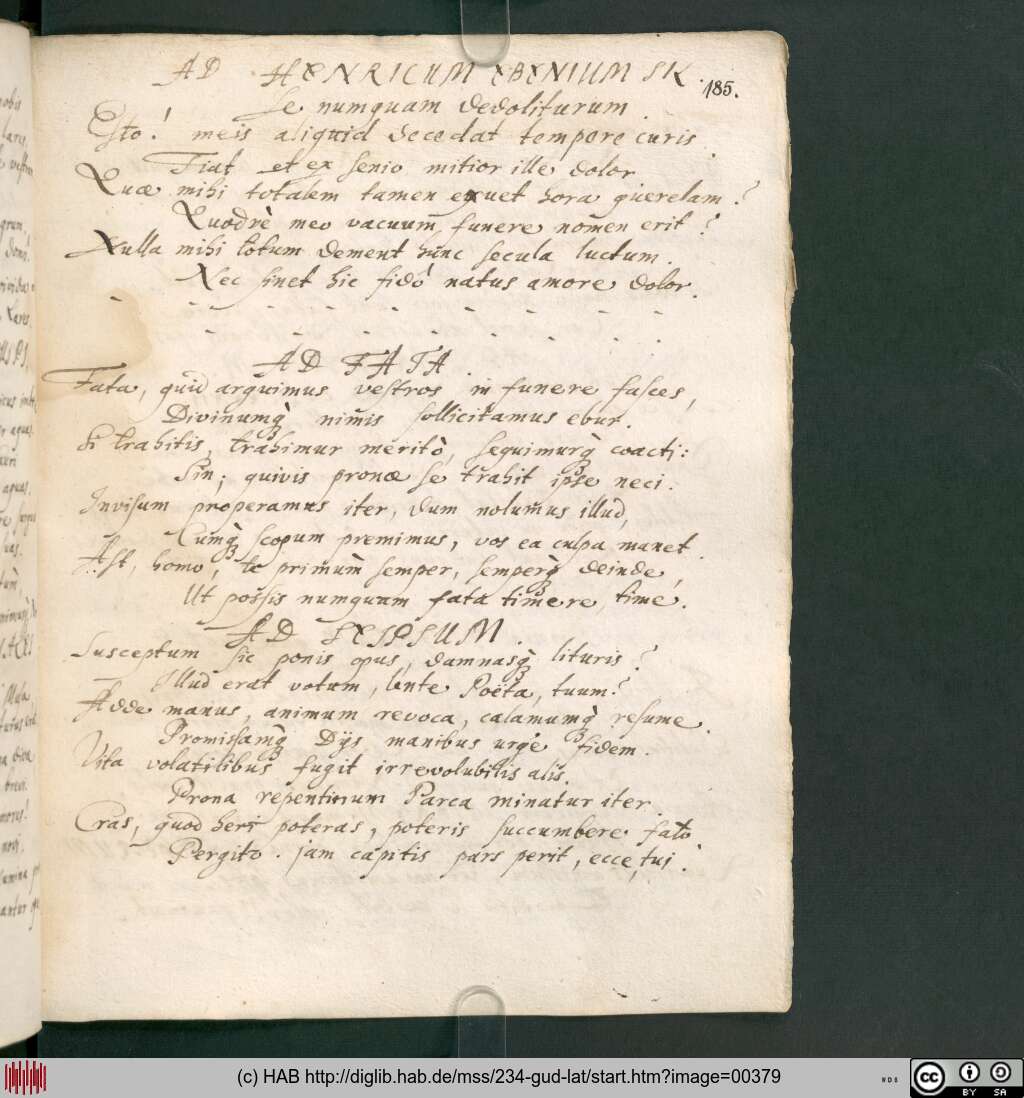 AD HENRICUM EBENIUM SK
185.
Se numquam dedoliturum.
Esto! meis aliquid decedat tempore curis.
Fiat et ex senio mitior ille dolor
Quæ mihi totalem tamen exuet hora querelam?
Quodrè meo vacuum funere nomen erit?
Nulla mihi totum dement hunc secula luctum.
Nec sinet hic fido natus amore dolor.
AD FATA.
Fata, quid arguimus vestros in funere fasces,
Divinumq̀ nimis sollicitamus ebur.
Si trahitis, trahimur meritò, sequimurq̀ coacti:
Sin; quivis pronæ se trahit ipse neci.
Invisum properamus iter, dum nolumus illud,
Cumq̀ scopum premimus, vos ea culpa manet.
Ast, homo, te primùm semper, semperq̀ deinde,
Ut possis numquam fata timere, time.
AD SEIPSUM.
Susceptum sic ponis opus, damnasq̀ lituris?
Illud erat votum, lente Poëta, tuum?
Adde manus, animum revoca, calamumq̀ resume.
Promissamq̀ Dijs manibus urge fidem.
Vita volatilibus fugit irrevolubilis alis.
Prona repentinum Parca minatur iter.
Cras, quod heri poteras, poteris succumbere fato
Pergito. jam capitis pars perit, ecce, tui.
(c) HAB http://diglib.hab.de/mss/234-gud-lat/start.htm?image=00379
cc BY SA